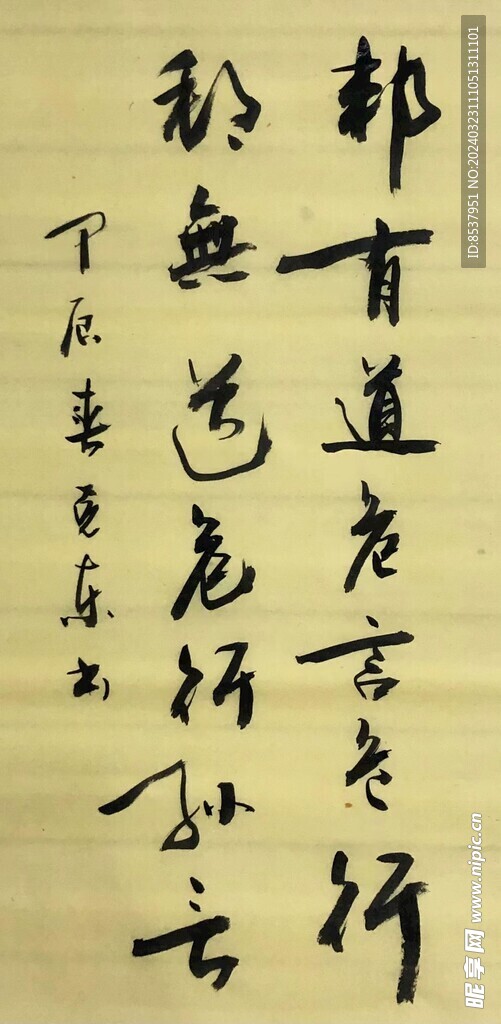 邦有道危言危行
邦無道危行孙言
甲辰春克东书
ID:8537951 NO:20240323111051311101
昵享网 www.nipic.cn